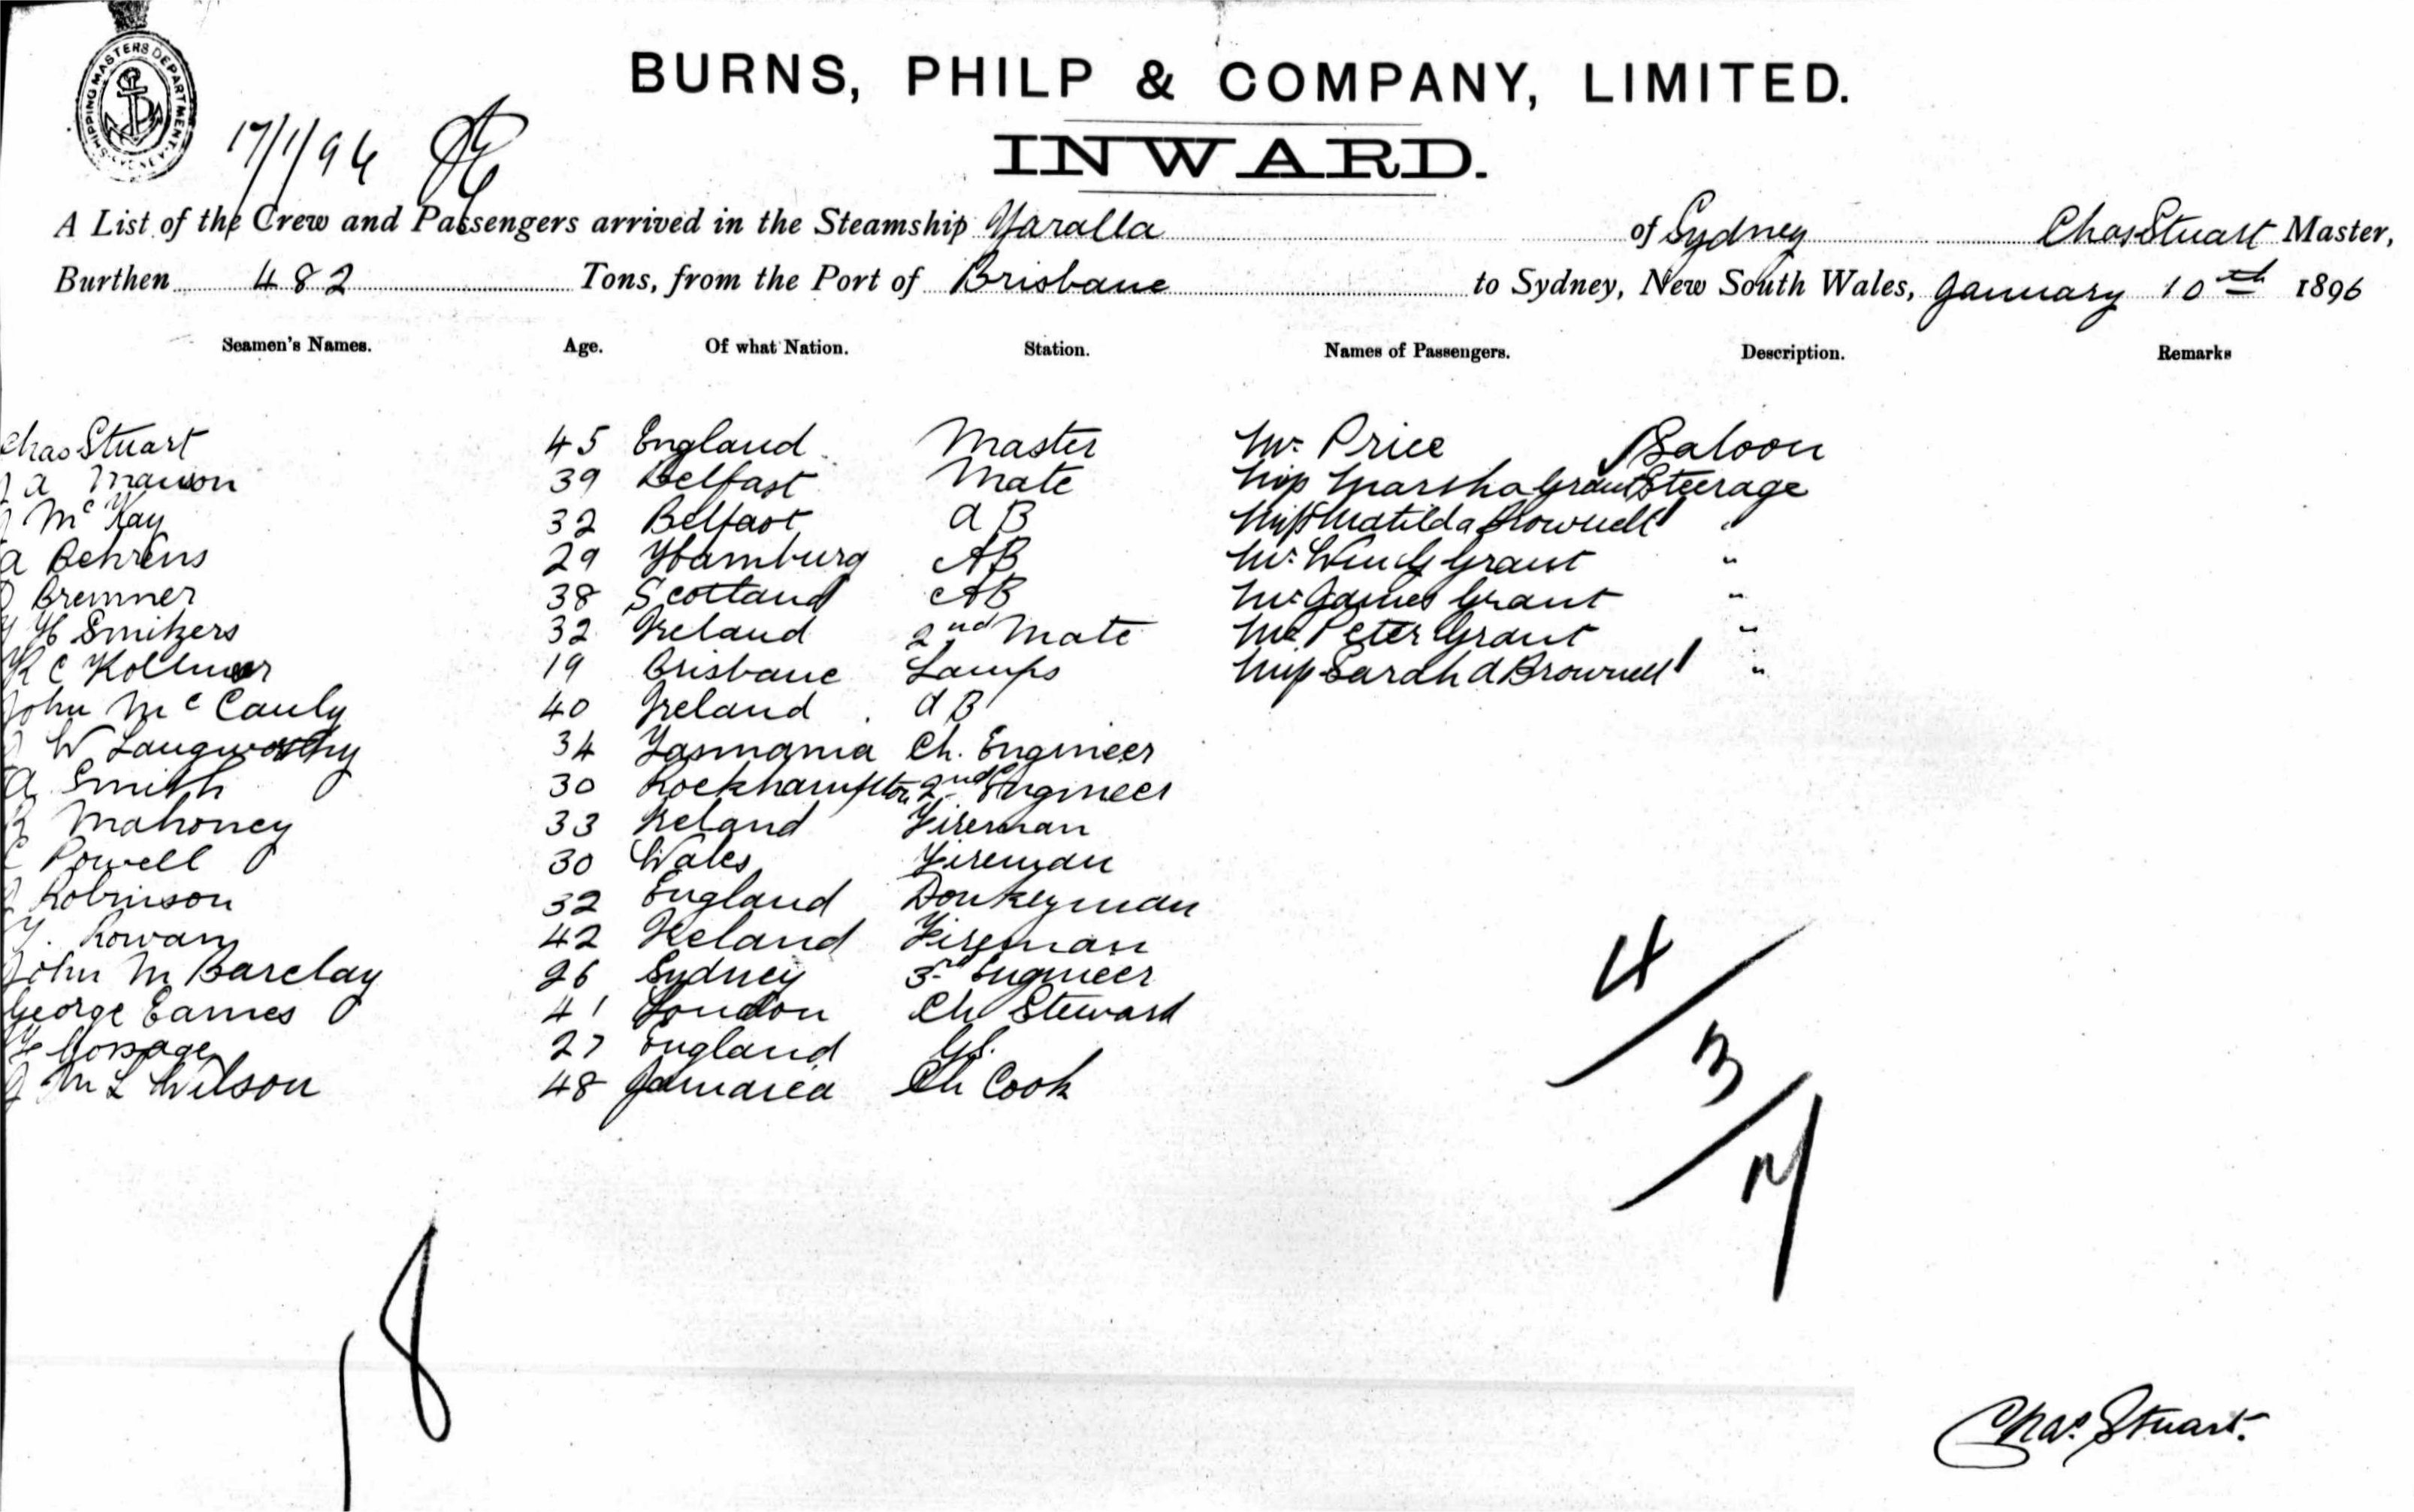 SHIPPING MASTERS DEPARTMENT
BURNS, PHILP & COMPANY, LIMITED.
17/1/96
INWARD.
A List of the Crew and Passengers arrived in the Steamship Yaralla of Sydney Chas Stuart Master,
Burthen 482 Tons, from the Port of Brisbane to Sydney, New South Wales, January 10th 1896
Seamen's Names. Age. Of what Nation. Station. Names of Passengers. Description. Remarks
Chas Stuart 45 England Master Mr Price Saloon
A 39 Belfast Mate Miss Marsha Grant Steerage
McKay 32 Belfast AB Miss Matilda Brownell "
A Behrens 29 Hamburg AB Mr Grant "
Bremner 38 Scotland AB Mr James Grant "
H Smitzers 32 Ireland 2nd Mate Mr Peter Grant "
R C 19 Brisbane Lamps Miss Sarah A Brownell "
John McCauly 40 Ireland AB
W Langworthy 34 Tasmania Ch. Engineer
A Smith 30 Rockhampton 2nd Engineer
Mahoney 33 Ireland Fireman
Powell 30 Wales Fireman
Robinson 32 England Donkeyman
Rowan 42 Ireland Fireman
John M Barclay 26 Sydney 3rd Engineer
George Eames 41 London Ch Steward
27 England
J M L Wilson 48 Jamaica Ch Cook
4/3/7
18
Chas. Stuart.